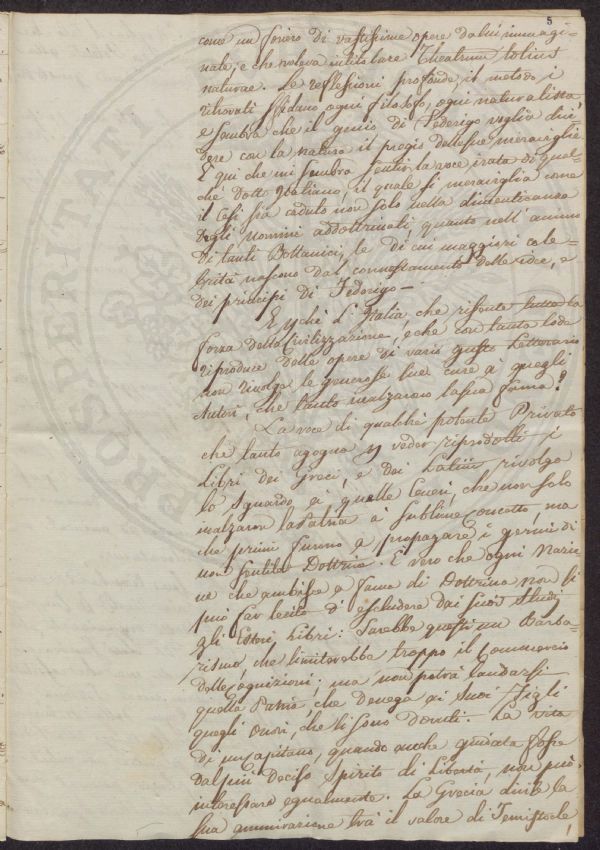 5
come un foriero di vastissime opere da lui immagi-
nate, e che voleva intitolare Theatrum totius
naturae. Le reflessioni profonde, il metodo i
ritrovati sfidano ogni filosofo, ogni naturalista,
e sembra che il genio di Federigo voglia divi-
dere con la natura il pregio delle sue meraviglie
E qui che mi sembra sentir la voce irata di qual-
che Dotto Italiano, il quale si meraviglia come
il Cesi sia caduto non solo nella dimenticanza
degli uomini addottrinati, quanto nell' animo
di tanti Bottanici, le di cui maggiori cele-
brità nascono dal connestamento delle idee, e
dei principi di Federigo —
E perchè l' Italia, che risente tutta la
forza della Civilizzazione, e che con tanta lode
riproduce delle opere di vario gusto Letterario
non rivolge le generose sue cure a quegli
Autori, che tanto inalzarono la sua fama?
La voce di qualchè potente Privato
che tanto agogna veder riprodotti i
Libri dei Greci, e dei Latini rivolga
lo sguardo a quelle Ceneri, che non solo
inalzaron la Patria a sublime concetto, ma
che primi furono a propagare i germi di
non sentita Dottrina. E vero che ogni Nazio-
ne che ambisce a fama di Dottrina non si
può far lecito d' escludere dai suoi studj
gli Esteri Libri: Sarebbe questo un Barba-
rismo, che limiterebbe troppo il Commercio
delle cognizioni; ma non potrà laudarsi
quella Patria, che denega ai suoi Figli
quegli Onori, che li sono dovuti. La vita
di un Capitano, quando anche guidata fosse
dal più deciso spirito di libertà, non può
interessare egualmente. La Grecia divise la
sua ammirazione trà il valore di Temistocle